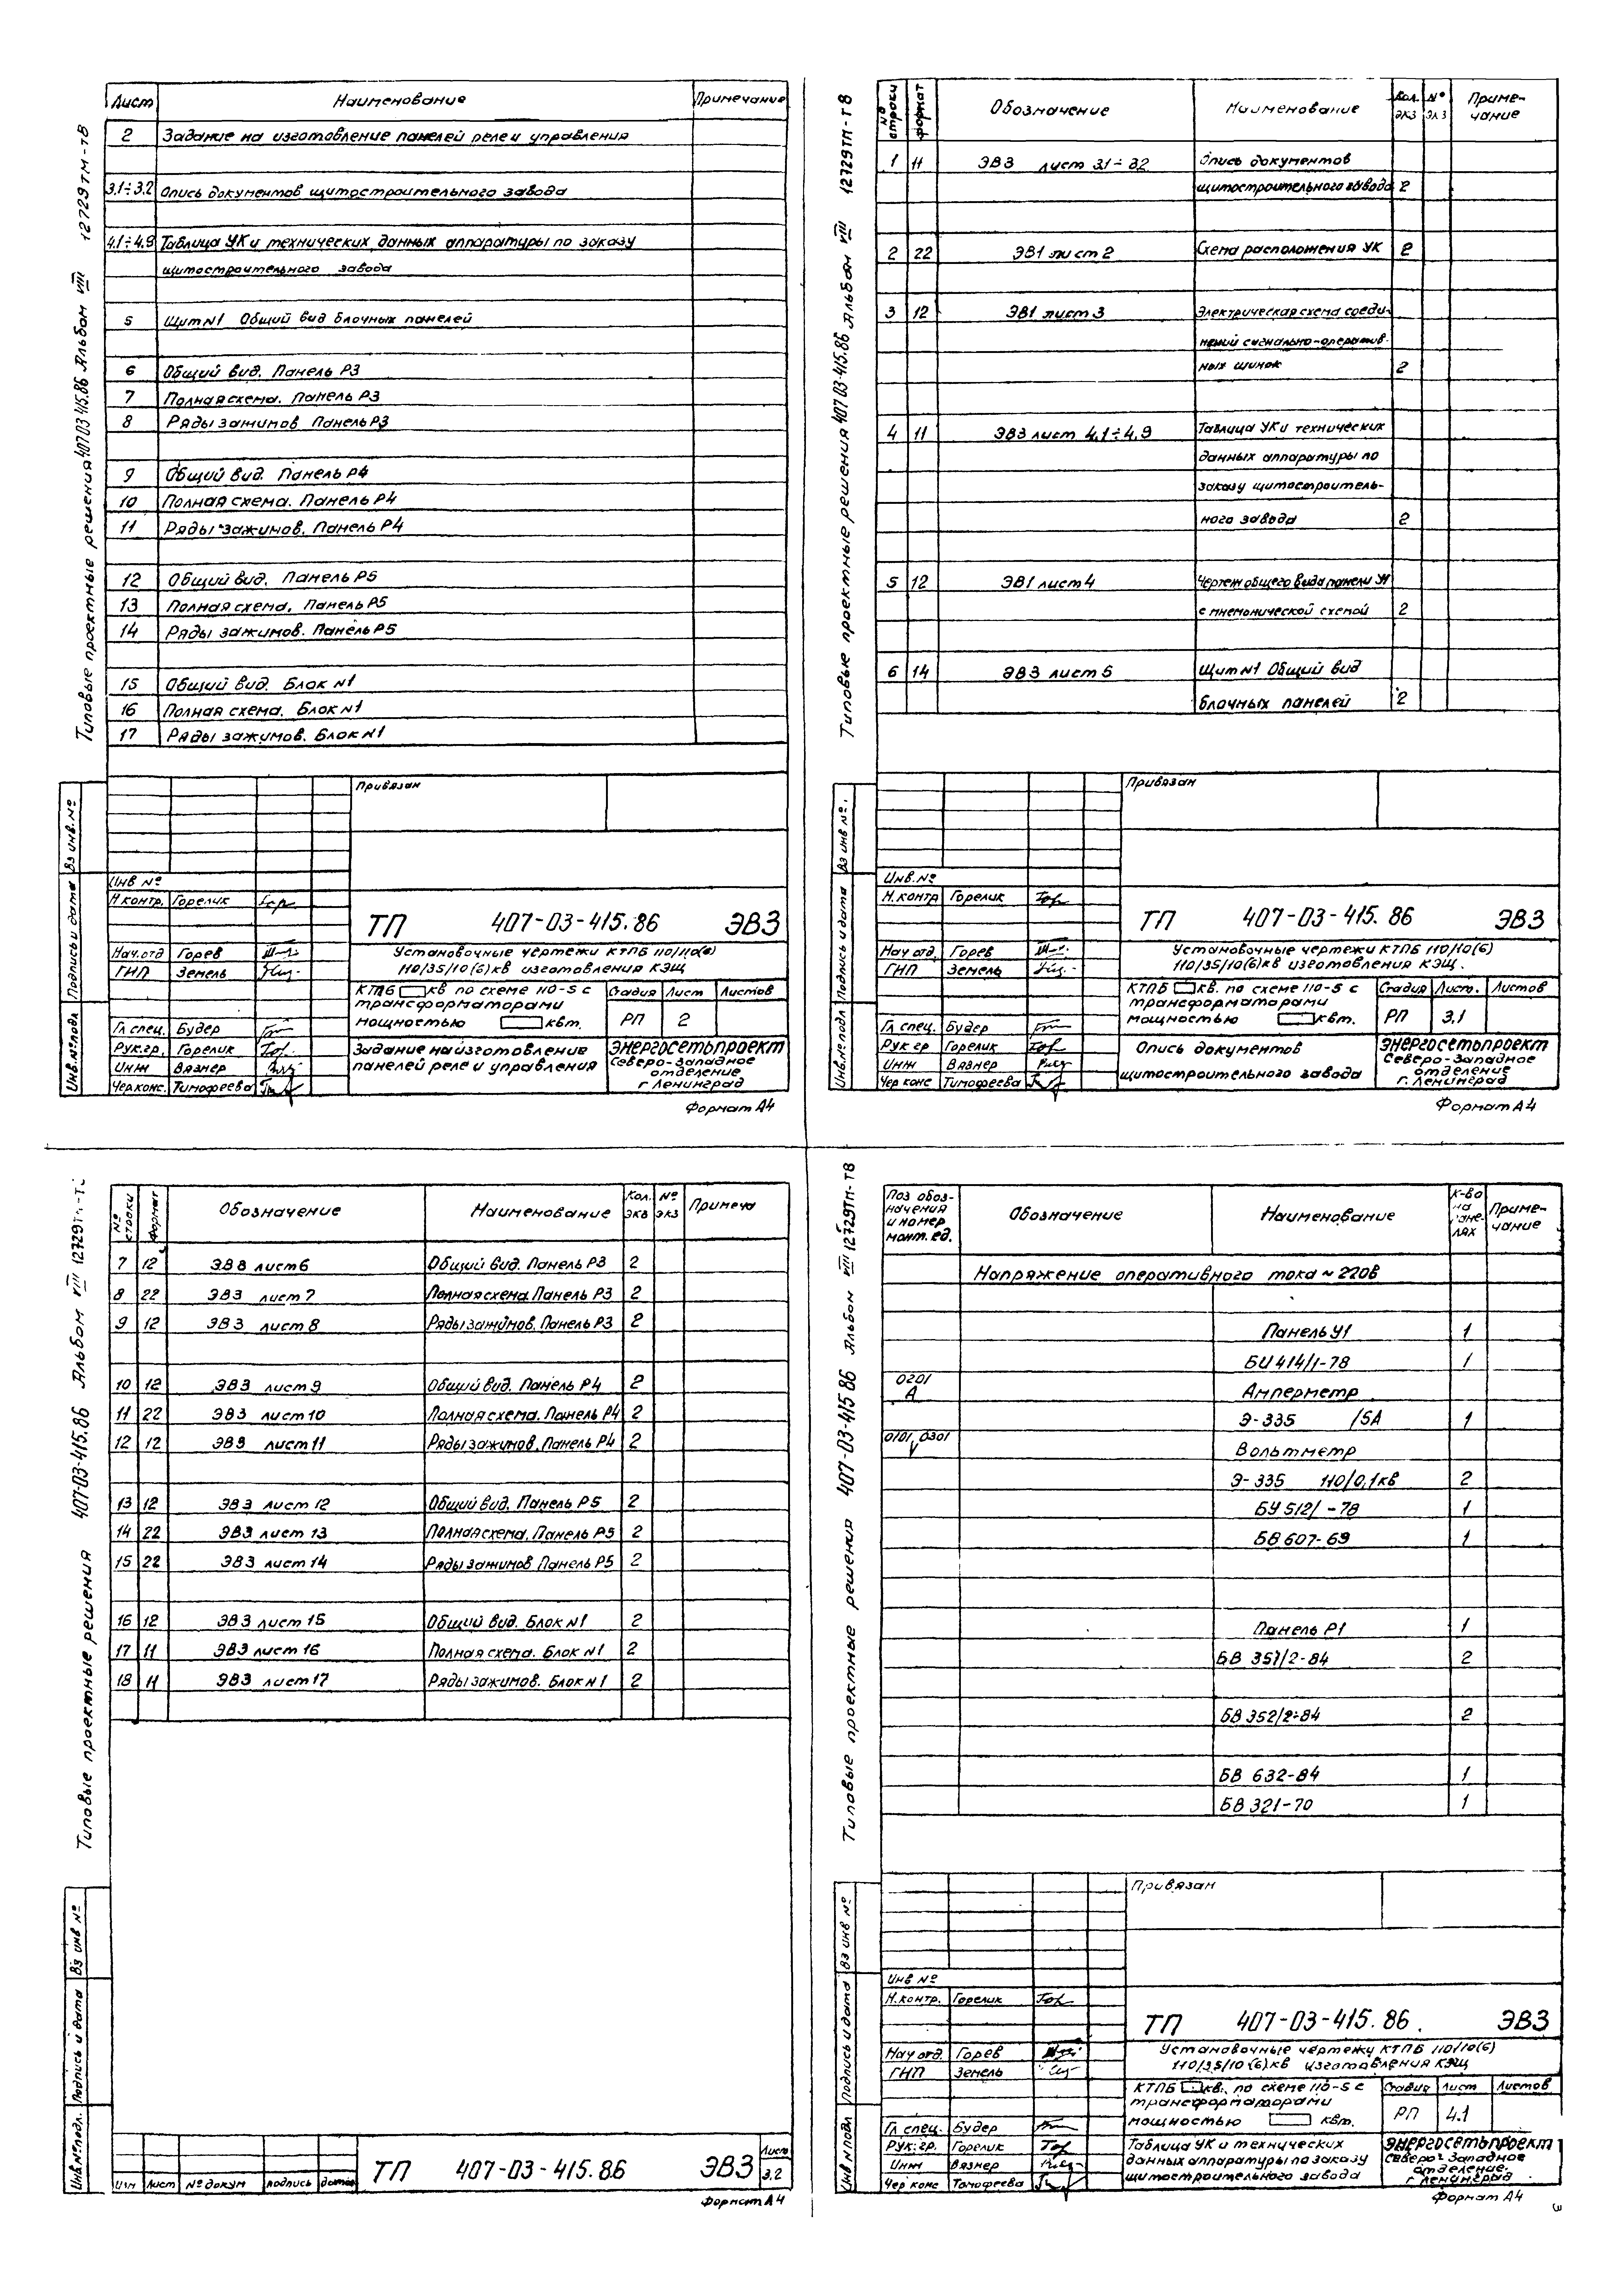 Типовые проектные решения 407 03 415.86 Альбом VIII 12729тм-т8
Лист Наименование Примечание
2 Задание на изготовление панелей реле и управления
3.1÷3.2 Опись документов щитостроительного завода
4.1÷4.9 Таблица УК и технических данных аппаратуры по заказу
щитостроительного завода
5 Щит N1 Общий вид блочных панелей
6 Общий вид. Панель Р3
7 Полная схема. Панель Р3
8 Ряды зажимов Панель Р3
9 Общий вид. Панель Р4
10 Полная схема. Панель Р4
11 Ряды зажимов. Панель Р4
12 Общий вид. Панель Р5
13 Полная схема. Панель Р5
14 Ряды зажимов. Панель Р5
15 Общий вид. Блок N1
16 Полная схема. Блок N1
17 Ряды зажимов. Блок N1
Привязан
Инв №
Н.контр. Горелик
ТП 407-03-415.86 ЭВ3
Нач.отд Горев
ГИП Земель
Установочные чертежи КТПБ 110/10(6)
110/35/10(6)кв изготовления КЭЩ
КТПБ кв по схеме 110-5 с
трансформаторами
мощностью квт.
Стадия Лист Листов
РП 2
Гл спец. Будер
Рук.гр. Горелик
Инж Вязнер
Чер конс. Тимофеева
Задание на изготовление
панелей реле и управления
ЭНЕРГОСЕТЬПРОЕКТ
Северо-Западное
отделение
г Ленинград
Инв.№ подл Подпись и дата Вз инв.№
Формат А4
Типовые проектные решения 407 03-415.86 Альбом VIII 12729ТМ-Т8
№ строки формат Обозначение Наименование Кол. экз № экз Приме-
чание
1 11 ЭВ3 лист 3.1÷3.2 Опись документов
щитостроительного завода 2
2 22 ЭВ1 лист 2 Схема расположения УК 2
3 12 ЭВ1 лист 3 Электрическая схема соеди-
нений сигнально-оператив-
ных шинок 2
4 11 ЭВ3 лист 4.1÷4.9 Таблица УК и технических
данных аппаратуры по
заказу щитостроитель-
ного завода 2
5 12 ЭВ1 лист 4 Чертеж общего вида панели У1
с мнемонической схемой 2
6 14 ЭВ3 лист 5 Щит N1 Общий вид
блочных панелей 2
Привязан
Инв.№
Н.контр Горелик
ТП 407-03-415.86 ЭВ3
Нач отд. Горев
ГИП Земель
Установочные чертежи КТПБ 110/10(6)
110/35/10(6)кв изготовления КЭЩ.
КТПБ кв. по схеме 110-5 с
трансформаторами
мощностью квт.
Стадия Листо. Листов
РП 3.1
Гл спец. Будер
Рук гр Горелик
Инж Вязнер
Чер конс Тимофеева
Опись документов
щитостроительного завода
ЭНЕРГОСЕТЬПРОЕКТ
Северо-Западное
отделение
г. Ленинград
Инв.№ подл Подпись и дата Вз инв №.
Формат А4
Типовые проектные решения 407-03-415.86 Альбом VIII
№ строки Формат Обозначение Наименование Кол. экз № экз Примеча
7 12 ЭВ3 лист 6 Общий вид. Панель Р3 2
8 22 ЭВ3 лист 7 Полная схема Панель Р3 2
9 12 ЭВ3 лист 8 Ряды зажимов. Панель Р3 2
10 12 ЭВ3 лист 9 Общий вид. Панель Р4 2
11 22 ЭВ3 лист 10 Полная схема. Панель Р4 2
12 12 ЭВ3 лист 11 Ряды зажимов. Панель Р4 2
13 12 ЭВ3 лист 12 Общий вид. Панель Р5 2
14 22 ЭВ3 лист 13 Полная схема. Панель Р5 2
15 22 ЭВ3 лист 14 Ряды зажимов Панель Р5 2
16 12 ЭВ3 лист 15 Общий вид. Блок N1 2
17 11 ЭВ3 лист 16 Полная схема. Блок N1 2
18 11 ЭВ3 лист 17 Ряды зажимов. Блок N1 2
Инв №подл. Подпись и дата Вз инв №
Изм Лист № докум подпись дата
ТП 407-03-415.86 ЭВ3
Лист
3.2
Формат А4
Типовые проектные решения 407-03-415 86 Альбом VIII 12729тм-т8
Поз обоз-
начения
и номер
монт. ед.
Обозначение Наименование
к-во
на
пане-
лях
Приме-
чание
Напряжение оперативного тока ~ 220в
Панель У1 1
БИ 414/1-78 1
0201
А Амперметр
Э-335 /5А 1
0101, 0301
V Вольтметр
Э-335 110/0,1кв 2
БУ 512/ -78 1
БВ 607-69 1
Панель Р1 1
БВ 351/2-84 2
БВ 352/2-84 2
БВ 632-84 1
БВ 321-70 1
Привязан
Инв №
Н.контр. Горелик
ТП 407-03-415.86. ЭВ3
Нач отд. Горев
ГИП Земель
Установочные чертежи КТПБ 110/10(6)
110/35/10(6)кв изготовления КЭЩ
КТПБ кв. по схеме 110-5 с
трансформаторами
мощностью квт.
Стадия Лист Листов
РП 4.1
Гл спец. Будер
Рук.гр. Горелик
Инж Вязнер
Чер конс Тимофеева
Таблица УК и технических
данных аппаратуры по заказу
щитостроительного завода
ЭНЕРГОСЕТЬПРОЕКТ
Северо-Западное
отделение.
г Ленинград
Инв № подл Подпись и дата Вз инв №
Формат А4
3